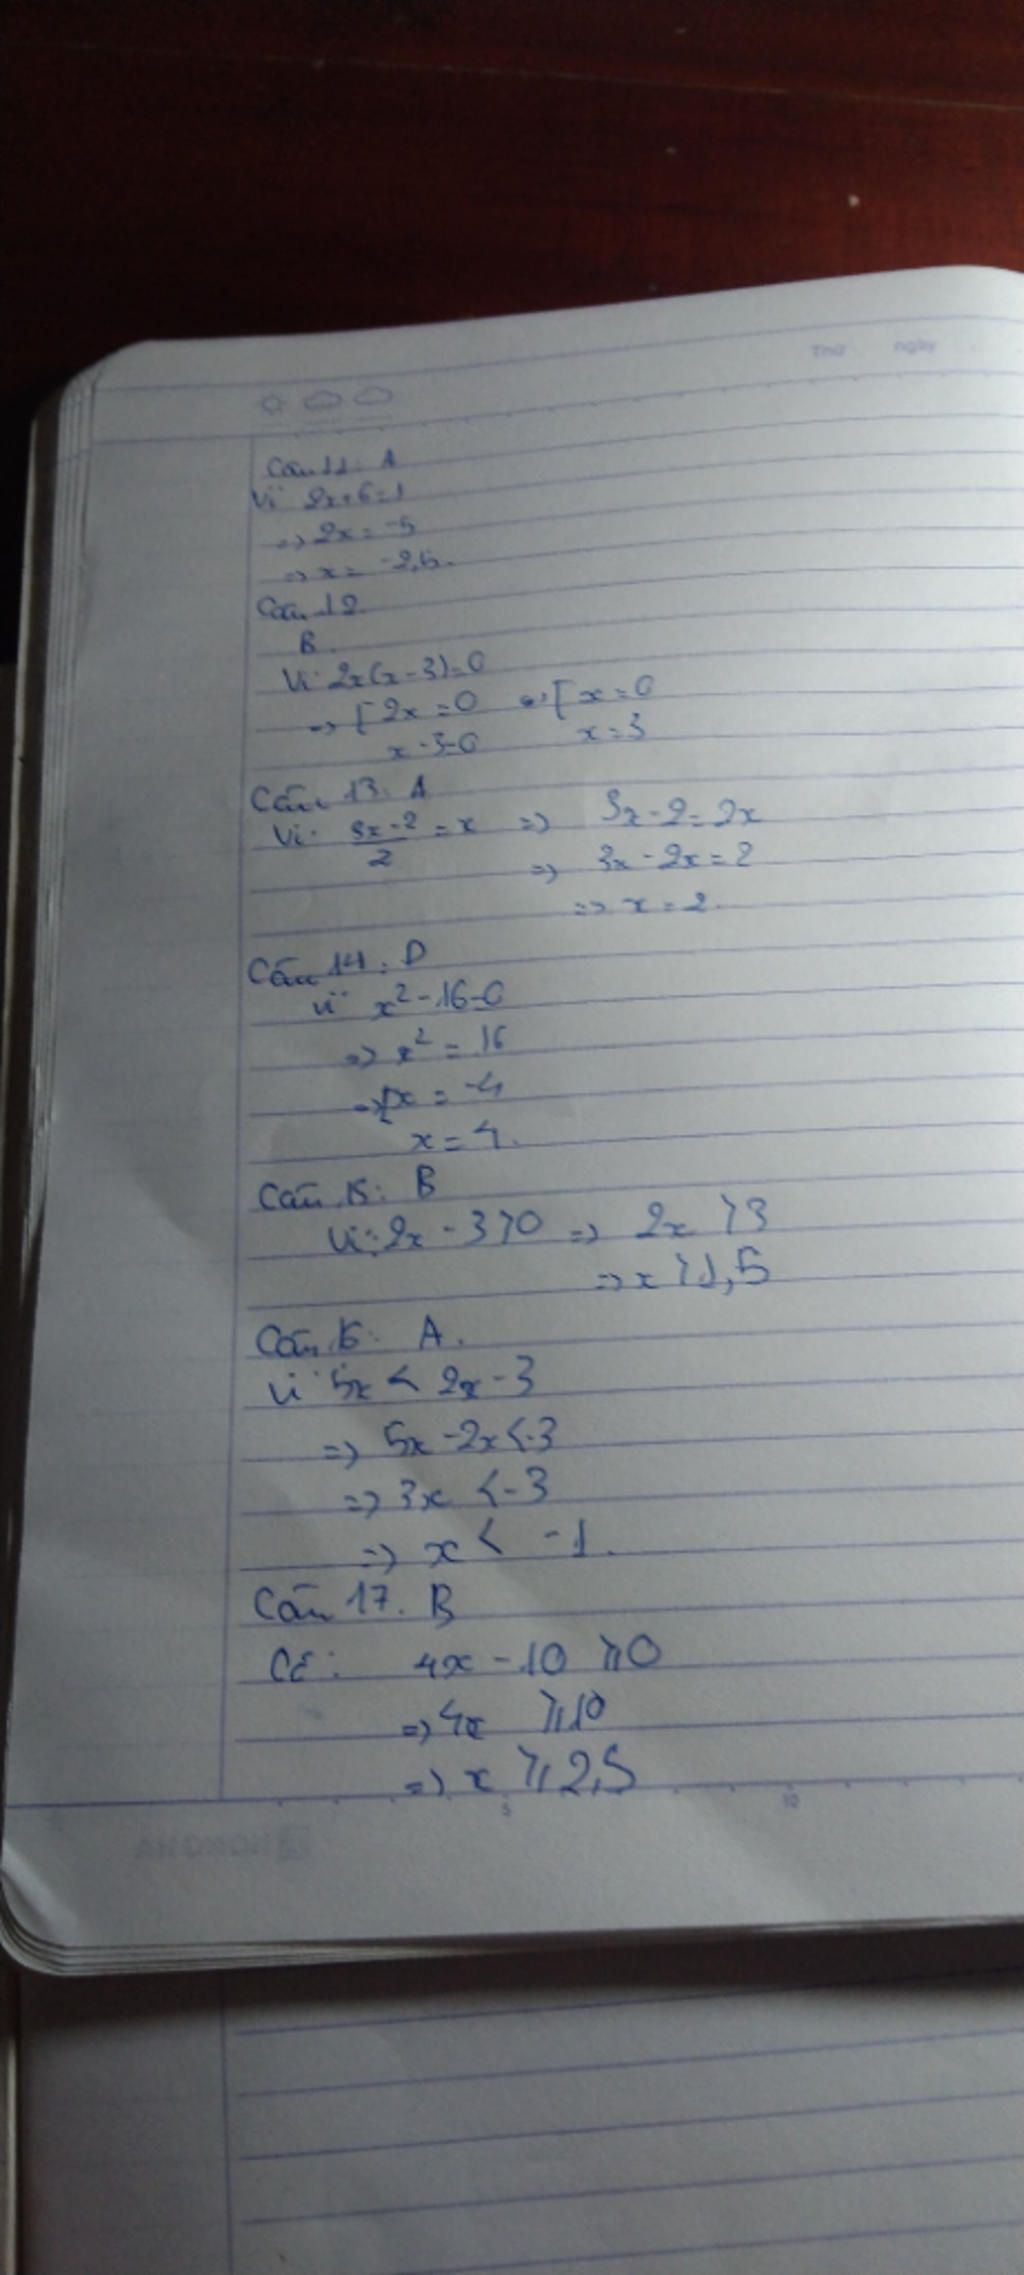 Thứ ngày
Câu 11: A
Vì 2x+6=1
=> 2x = -5
=> x = -2,5.
Câu 12
B.
Vì 2x(x-3)=0
=> [ 2x = 0 => [ x = 0
x-3=0 x = 3
Câu 13: A
Vì: 3x-2/2 = x => 3x-2=2x
=> 3x-2x=2
=> x = 2.
Câu 14: D
Vì x²-16=0
=> x² = 16
=> [x = -4
x = 4.
Câu 15: B
Vì: 2x - 3 > 0 => 2x > 3
=> x > 1,5
Câu 16: A.
Vì 5x < 2x - 3
=> 5x - 2x < -3
=> 3x < -3
=> x < -1.
Câu 17. B
4x - 10 ⩾ 0
=> 4x ⩾ 10
=> x ⩾ 2,5
5 10